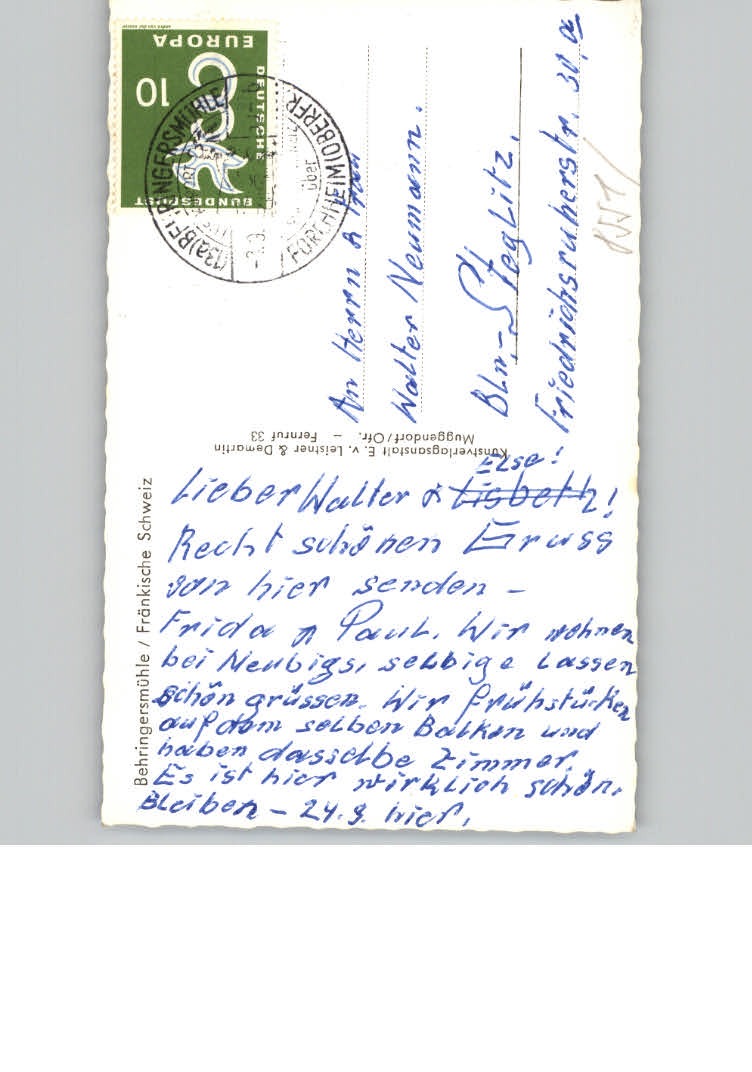 Lieber Walter & Lisbeth!
Else!
Recht schönen Gruss
von hier senden –
Frida & Paul. Wir wohnen
bei Neubigs, selbige lassen
schön grüssen. Wir frühstücken
auf dem selben Balkon und
haben dasselbe Zimmer.
Es ist hier wirklich schön.
Bleiben – 24.9. hier.
An Herrn & Frau
Walter Neumann.
Bln.-Steglitz.
Friedrichsruherstr. 30, a
Behringersmühle / Fränkische Schweiz
Kunstverlagsanstalt E. v. Leistner & Demartin
Muggendorf/Ofr. – Fernruf 33
EUROPA
10
DEUTSCHE
BUNDESPOST
(13a) BEHRINGERSMÜHLE
über
FORCHHEIM (OBERFR.)